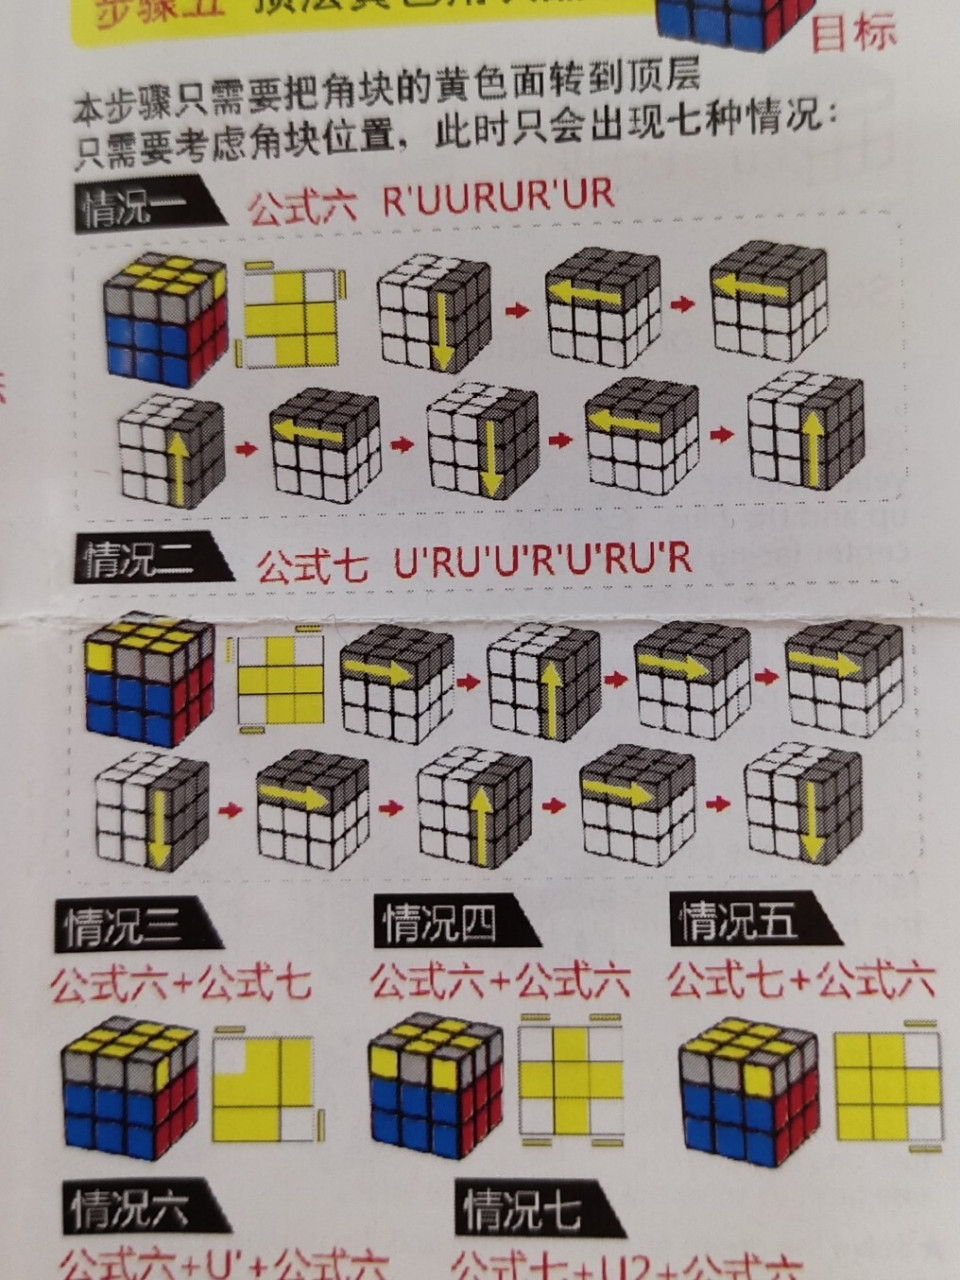 步骤五
目标
本步骤只需要把角块的黄色面转到顶层
只需要考虑角块位置，此时只会出现七种情况：
情况一 公式六 R'UURUR'UR
情况二 公式七 U'RU'U'R'U'RU'R
情况三 情况四 情况五
公式六+公式七 公式六+公式六 公式七+公式六
情况六 情况七
公式六+U'+公式六 公式七+U2+公式六